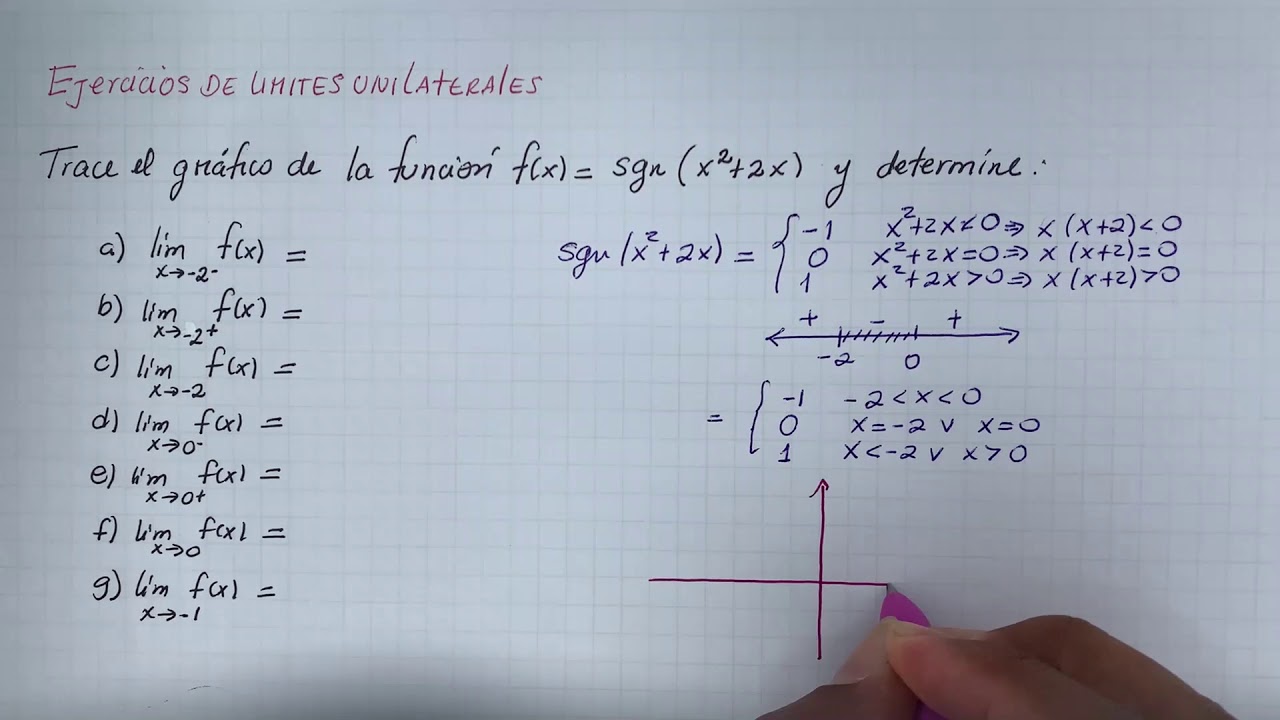 Ejercicios DE LIMITES UNILATERALES
Trace el gráfico de la función f(x) = sgn (x²+2x) y determine:
a) lím f(x) =
x→-2⁻
b) lím f(x) =
x→-2⁺
c) lím f(x) =
x→-2
d) lím f(x) =
x→0⁻
e) lím f(x) =
x→0⁺
f) lím f(x) =
x→0
g) lím f(x) =
x→-1
sgn (x²+2x) = { -1 x²+2x<0 ⇒ x (x+2) < 0
0 x²+2x=0 ⇒ x (x+2) = 0
1 x²+2x>0 ⇒ x (x+2) > 0
+ - +
-2 0
= { -1 -2 < x < 0
0 x=-2 v x=0
1 x<-2 v x>0